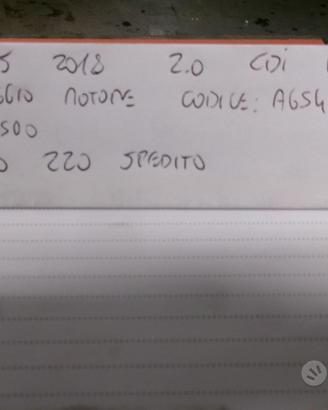 5 2018 2.0 CDI
GGIO MOTORE CODICE: A654
500
0 220 SPEDITO